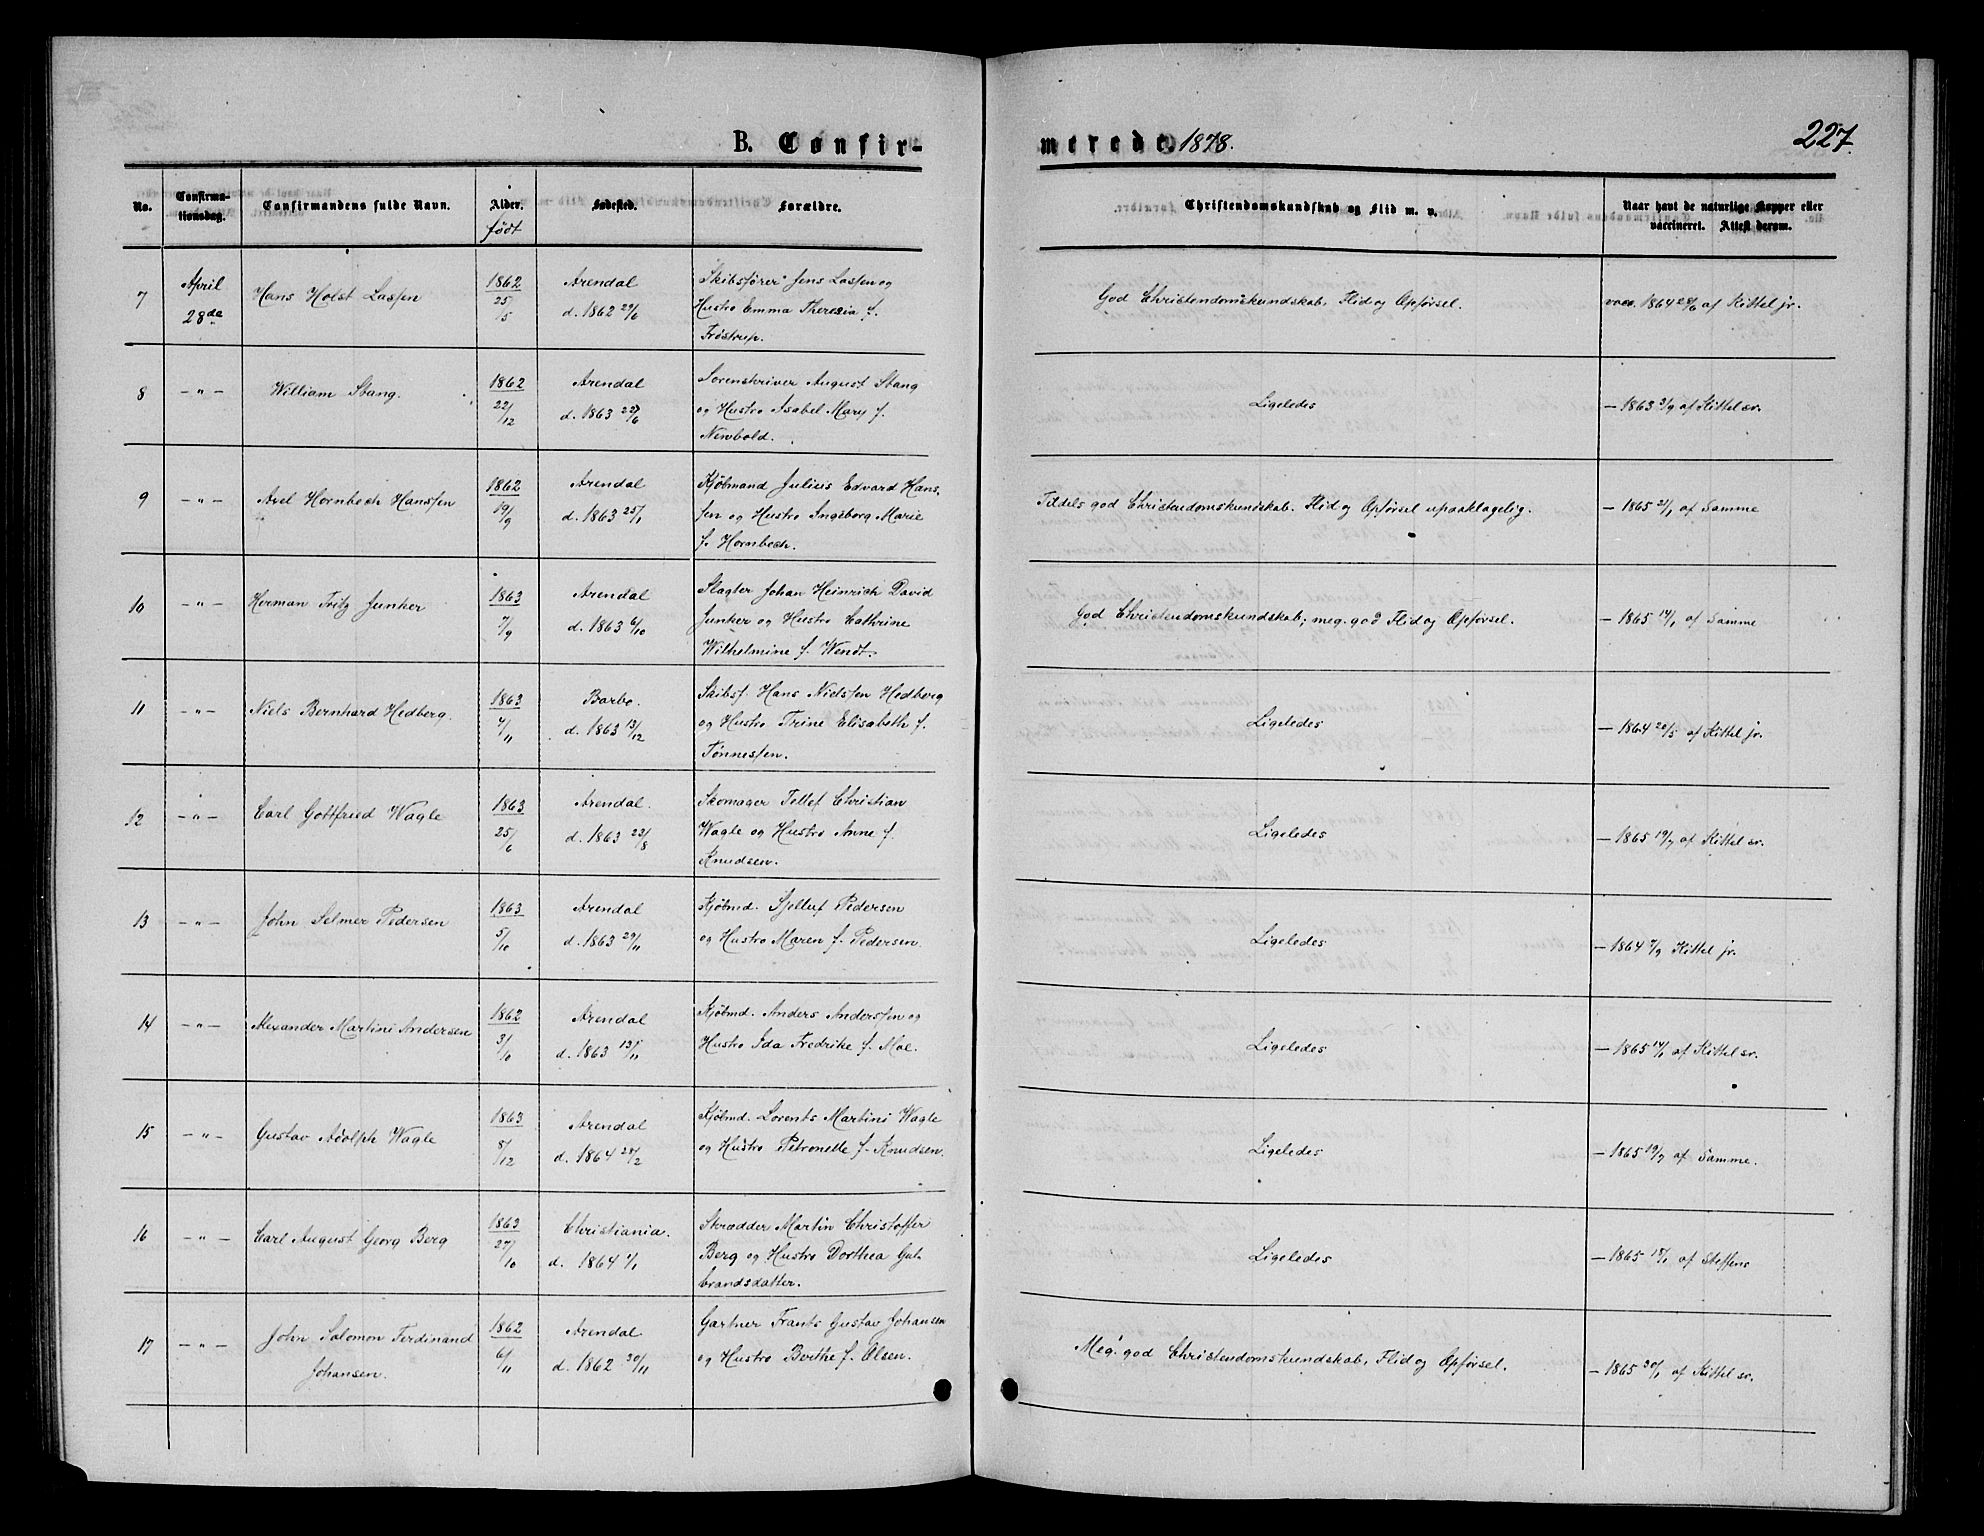 B. Confir-
merede 1878.
227.
No.
Confirma-
tionsdag.
Confirmandens fulde Navn.
Alder.
født
Fødested.
Forældre.
Christendomskundskab og Flid m. v.
Naar havt de naturlige Kopper eller
vaccineret. Attest derom.
7
April
28de
Hans Holst Lassen
1862
25/5
Arendal
d. 1862 29/6
Skibsfører Jens Lassen og
Hustro Emma Theresia f.
Frøstrup.
God Christendomskundskab, Flid og Opførsel.
vacc. 1864 28/6 af Kittel jr.
8
- " -
William Stang.
1862
22/12
Arendal
d. 1863 27/6
Sorenskriver August Stang
og Hustro Isabel Mary f.
Newbold.
Ligeledes
- 1863 3/9 af Kittel sr.
9
- " -
Axel Hornbech Hanssen
1862
19/9
Arendal
d. 1863 25/1
Kjøbmand Julius Edvard Hans-
sen og Hustro Ingeborg Marie
f. Hornbech.
Tildels god Christendomskundskab. Flid og Opførsel upaaklagelig.
- 1865 21/1 af Samme
10
- " -
Herman Fritz Junker
1863
7/9
Arendal
d. 1863 6/10
Slagter Johan Heinrich David
Junker og Hustro Cathrine
Wilhelmine f. Wendt.
God Christendomskundskab; meg. god Flid og Opførsel.
- 1865 14/1 af Samme
11
- " -
Niels Bernhard Hedberg.
1863
4/11
Barbo.
d. 1863 13/12
Skibsf. Hans Nielsen Hedberg
og Hustro Trine Elisabeth f.
Tønnessen.
Ligeledes
- 1864 28/5 af Kittel jr.
12
- " -
Carl Gottfried Wagle
1863
25/6
Arendal.
d. 1863 23/8
Skomager Tellef Christian
Wagle og Hustro Anne f.
Knudsen.
Ligeledes
- 1865 19/7 af Kittel sr.
13
- " -
John Selmer Pedersen
1863
5/10
Arendal
d. 1863 29/11
Kjøbmd. Sjelluf Pedersen
og Hustro Maren f. Pedersen.
Ligeledes
- 1864 7/9 Kittel jr.
14
- " -
Alexander Martini Andersen
1862
3/10
Arendal
d. 1863 13/11
Kjøbmd. Anders Anderssen og
Hustro Ida Fredrike f. Moe.
Ligeledes
- 1865 14/1 af Kittel sr.
15
- " -
Gustav Adolph Wagle
1863
8/12
Arendal
d. 1864 28/2
Kjøbmd. Lorents Martini Wagle
og Hustro Petronelle f. Knudsen.
Ligeledes
- 1865 19/7 af Samme.
16
- " -
Carl August Georg Berg
1863
27/10
Christiania.
d. 1864 1/1
Skrædder Martin Christoffer
Berg og Hustro Dorthea Gul-
brandsdatter.
Ligeledes
- 1865 18/1 af Steffens
17
- " -
John Salomon Ferdinand
Johansen.
1862
6/11
Arendal
d. 1862 30/11
Gartner Frants Gustav Johansen
og Hustro Berthe f. Olsen.
Meg. god Christendomskundskab, Flid og Opførsel.
- 1865 30/1 af Kittel sr.